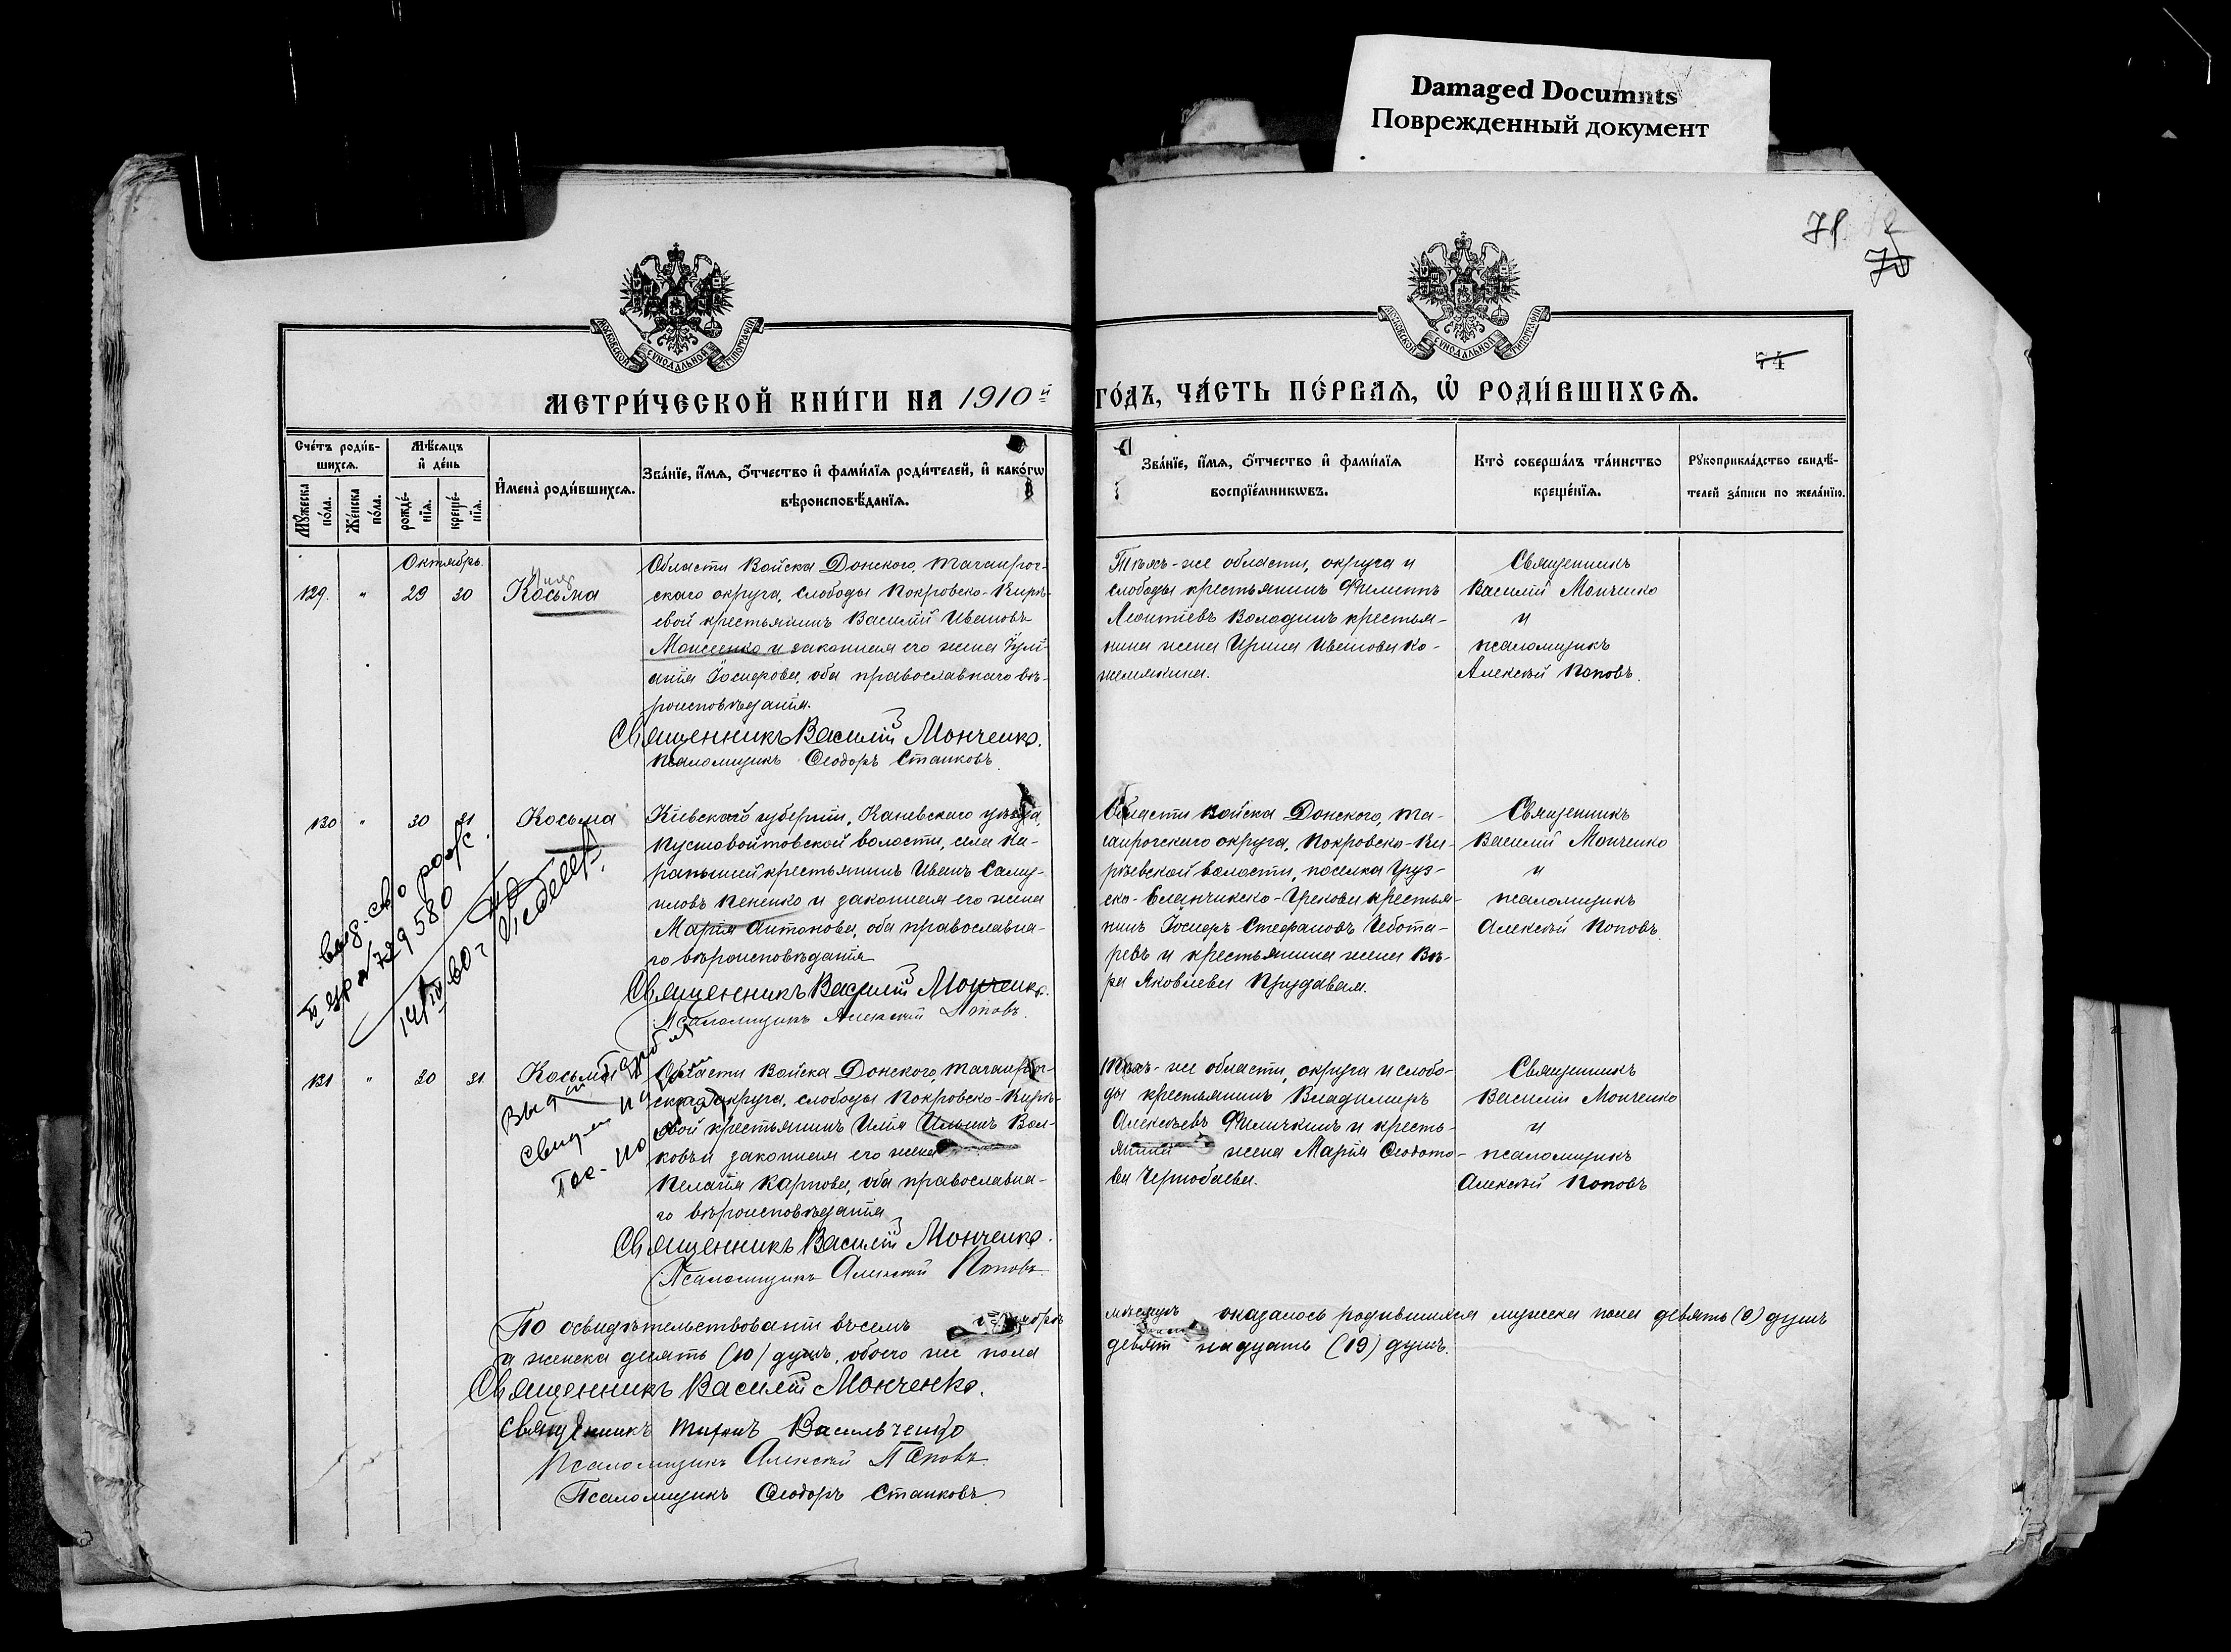 Damaged Documnts
Поврежденный документ
71
70
74
МОСКОВСКОЙ СУНОДАЛЬНОЙ ТИПОГРАФИИ
МОСКОВСКОЙ СУНОДАЛЬНОЙ ТИПОГРАФИИ
МЕТРИ́ЧЕСКОЙ КНИ́ГИ НА 1910й
ГО́ДЪ, ЧА́СТЬ ПЕ́РВАѦ, Ѽ РОДИ́ВШИХСѦ.
Сче́тъ роди́в-
шихсѧ.
Мѣ́сѧцъ
и҆ де́нь
Мꙋ́жеска по́ла.
Же́нска по́ла.
рожде́-
нїѧ.
креще́-
нїѧ.
И҆мена̀ роди́вшихсѧ.
Зва́нїе, и҆́мѧ, ѻ҆́тчество и҆ фами́лїѧ роди́телей, и҆ како́гѡ
вѣроисповѣ́данїѧ.
Зва́нїе, и҆́мѧ, ѻ҆́тчество и҆ фами́лїѧ
воспрїе́мникѡвъ.
Кто̀ соверша́лъ та́инство
креще́нїѧ.
Рꙋкоприкла́дство свидѣ́-
телей за́писи по жела́нїю.
Октябрь
129. " 29 30 Косьма
Области Войска Донского, Таганрог-
скаго округа, слободы Покровско-Кирѣ-
евой крестьянинъ Василій Ивановъ
Моисеенко и законная его жена Іулі-
анія Іосифова, оба православнаго вѣ-
роисповѣданія.
Священникъ Василій Монченко.
Псаломщикъ Ѳеодоръ Станковъ
Тѣхъ-же области, округа и
слободы крестьянинъ Филиппъ
Леонтіевъ Володинъ крестья-
нина жена Ирина Иванова Ко-
жемякина.
Священникъ
Василій Монченко
и
псаломщикъ
Алексѣй Поповъ.
130 " 30 31 Косьма
Кіевской губерніи, Каневскаго уѣзда,
Пустовойтовской волости, села Ка-
рапышей крестьянинъ Иванъ Саму-
иловъ Кененко и законная его жена
Марія Антонова, оба православна-
го вѣроисповѣданія
Священникъ Василій Монченко.
Псаломщикъ Алексѣй Поповъ.
Области Войска Донского, Та-
ганрогскаго округа, Покровско-Ки-
рѣевской волости, поселка Груз-
ско-Еланчикско-Грекова крестья-
нинъ Іосифъ Стефановъ Чебота-
ревъ и крестьянина жена Вѣ-
ра Яковлева
Священникъ
Василій Монченко
и
псаломщикъ
Алексѣй Поповъ.
выд. св-о рожс.
729580
14/IV 60г
131 " 30 31. Косьма
Области Войска Донского, Таганрог-
скаго округа, слободы Покровско-Кирѣ-
евой крестьянинъ Илія Ильинъ Вол-
ковъ и законная его жена
Пелагія Карпова, оба православна-
го вѣроисповѣданія
Священникъ Василій Монченко.
Псаломщикъ Алексѣй Поповъ
Тѣхъ-же области, округа и слобо-
ды крестьянинъ Владимиръ
Алексѣевъ Филичкинъ и кресть-
янина жена Марія Ѳеодото-
ва Чернобаева.
Священникъ
Василій Монченко
и
псаломщикъ
Алексѣй Поповъ
По освидѣтельствованіи въ семъ октябрѣ
мѣсяцѣ оказалось родившихся мужеска пола девять (9) душъ
и женска десять (10) душъ, обоего же пола
девятнадцать (19) душъ.
Священникъ Василій Монченко.
Священникъ Тихонъ Васильченко
Псаломщикъ Алексѣй Поповъ
Псаломщикъ Ѳеодоръ Станковъ